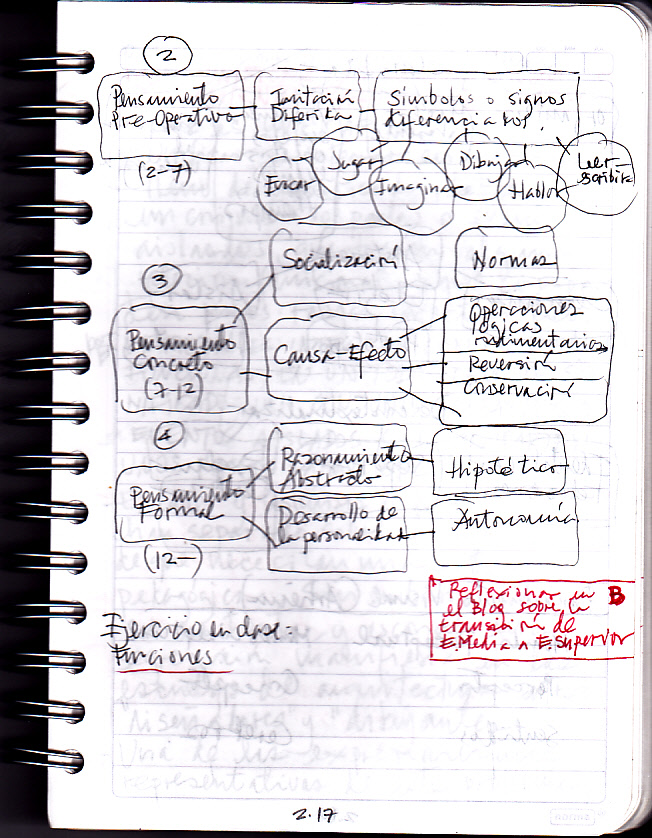 2
Pensamiento
Pre-Operativo
(2-7)
Imitación
Diferida
Símbolos o signos
diferenciados.
Evocar
Jugar
Imaginar
Dibujar
Hablar
Leer-
scribir
3
Pensamiento
Concreto
(7-12)
Socialización
Normas
Causa-Efecto
Operaciones
lógicas
rudimentarias
Reversión
Conservación
4
Pensamiento
Formal
(12-)
Razonamiento
Abstracto
Hipotético
Desarrollo de
la personalidad
Autonomía
Reflexionar en B
el Blog sobre la
transición de
E.Media a E.Superior
Ejercicio en clase:
Funciones
2.17
norma